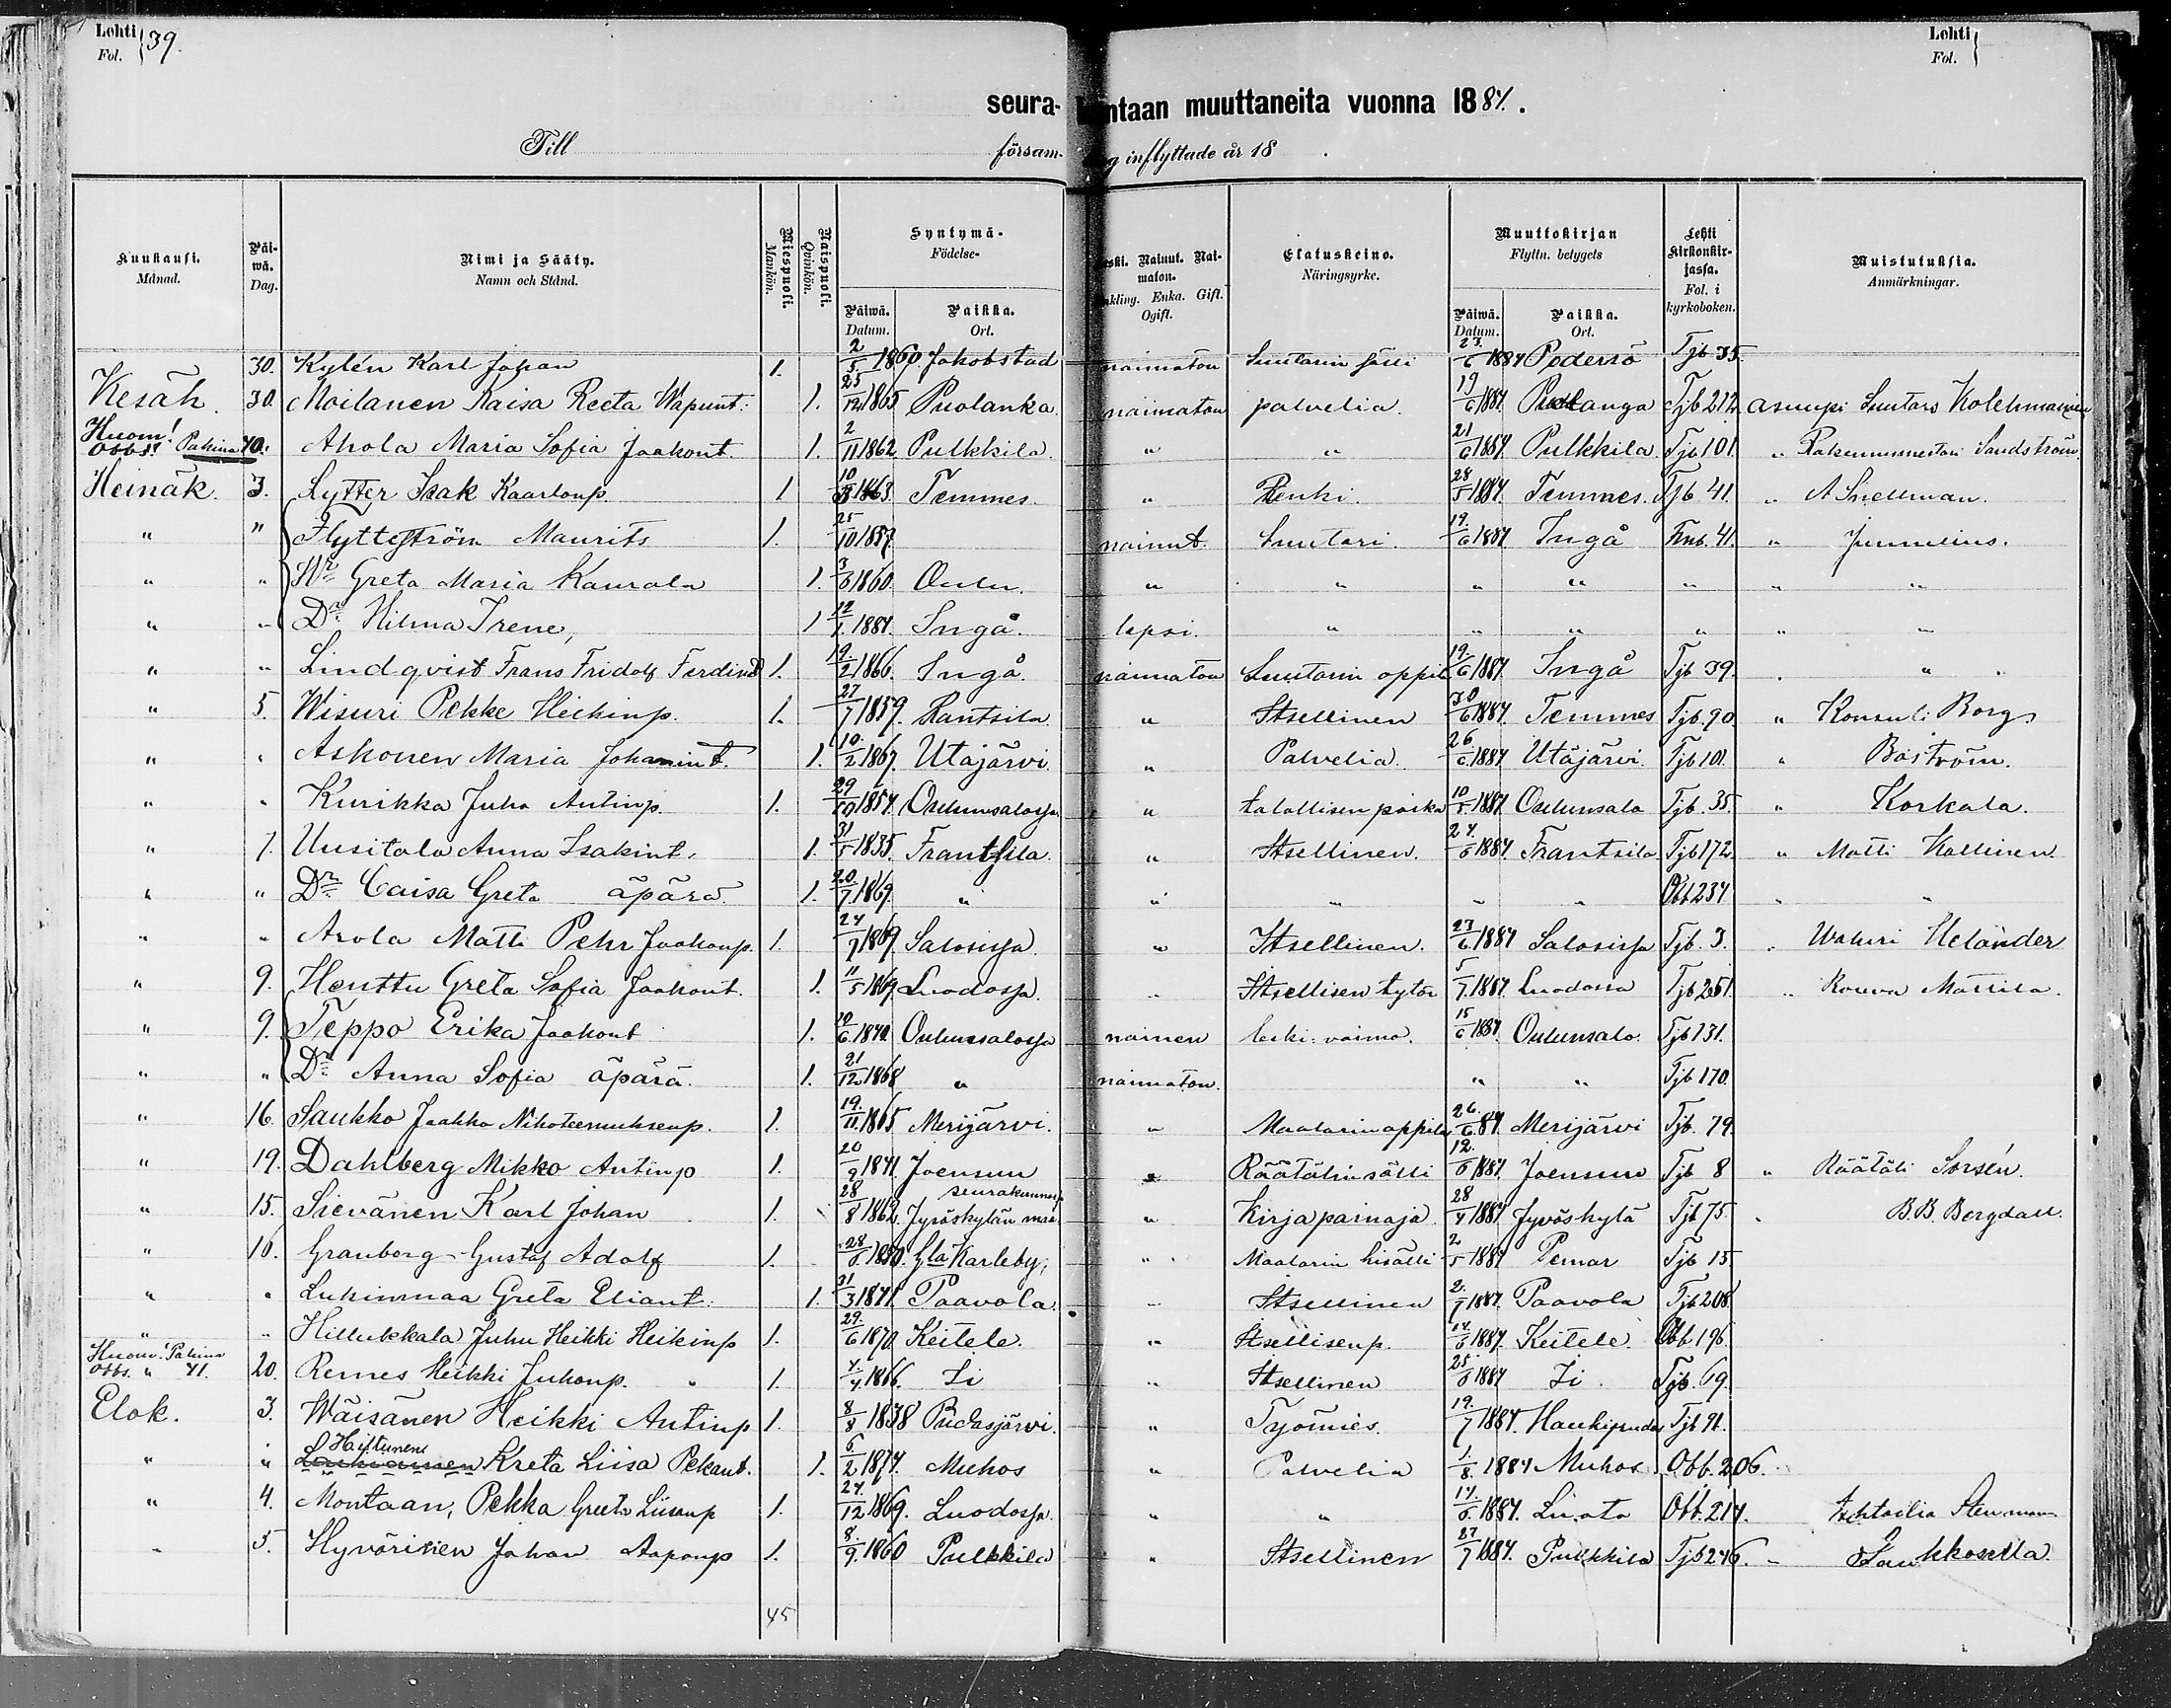 Lehti Fol. 39.
Lehti Fol.
seura- kuntaan muuttaneita vuonna 1884.
Till försam- g inflyttade år 18 .
Kuukausi. Månad. Päiwä. Dag. Nimi ja Sääty. Namn och Stånd. Miespuoli. Mankön. Naispuoli. Qvinkön. Syntymä- Födelse- Päiwä. Datum. Paikka. Ort. Leski. Nainut. Naimaton. Enkling. Enka. Gift. Ogift. Elatuskeino. Näringsyrke. Muuttokirjan Flyttn. betygets Päiwä. Datum. Paikka. Ort. Lehti Kirkonkirjassa. Fol. i kyrkoboken. Muistutuksia. Anmärkningar.
30. Kylén Karl Johan 1. 2/5 1860. Jakobstad naimaton Suutarin sälli 23/6 1884 Pedersö Tjb 35.
Kesäk. 30. Moilanen Kaisa Reeta Wapunt. 1. 25/12 1865 Puolanka. naimaton palvelia. 19/6 1884 Puolanga Tjb 212 asuupi Suutars Kolehmainen
Huom! Obbs! Pakina 40. Ahola Maria Sofia Jaakont. 1. 2/11 1862 Pulkkila. " " 21/6 1884. Pulkkila. Tjb 101. " Rakennusmestari Sandström.
Heinäk. 3. Lytter Isak Kaarloup. 1 10/ 1863. Temmes. " Renki. 28/5 1884. Temmes. Tjb 41. " A Snellman.
" " Flyttström Maurits 1. 25/10 1857 nainut. Suutari. 19./6 1884 Ingå Fmb. 41. " Junnelius.
" " Hr Greta Maria Kaurala 1. 3/6 1860. Oulu. " " " " " " "
" " Dr Hilma Irene, 1 12/1. 1884. Ingå. lapsi. " " " " " "
" " Lindqvist Frans Fridolf Ferdind 1. 19./2 1866. Ingå. naimaton Suutarin oppil 19./6 1884. Ingå Tjb 39. " "
" 5. Wisuri Pekke Heikinp. 1. 27/7 1859. Rantsila " Itsellinen 30/6 1884. Temmes Tjb. 90 " Konsuli Borg
" " Askonen Maria Johanint. 1. 10./2 1867. Utajärvi. " Palvelia. 26/6 1884 Utajärvi. Tjb 101. " Boström.
" " Kurikka Juho Antinp. 1. 29/10 1854. Oulunsalossa. " talollisen poika 10/5 1884. Oulunsalo Tjb. 35. " Korkala.
" 7. Uusitalo Anna Isakint. 1. 31/5 1835. Frantsila. " Itsellinen. 24./6 1884 Frantsila Tjb 172 " Matti Kallinen.
" " Dr Caisa Greta äpärä. 1. 20./7 1869. " " " " " Obb 234 " "
" " Arola Matti Pehr Jaakoup. 1. 24/9 1869. Saloissa. " Itsellinen. 27/6 1884 Saloissa Tjb. 3. " Waluri Helander
" 9. Henttu Greta Sofia Jaakont. 1. 11/5 1869 Luodossa. " Itsellisen tytär 5/7. 1884. Luodossa Tjb 251. " Rouva Mattila.
" 9. Teppo Erika Jaakont 1. 10/6. 1840. Oulunsalossa nainen leski-vaimo. 15/6 1884. Oulunsalo. Tjb 131.
" " Dr Anna Sofia äpärä. 1. 21/12 1868 " naimaton. " " Tjb 170.
" 16. Saukko Jaakko Nikoteemuksenp. 1. 19./11. 1865 Merijärvi. " Maalarin oppila 26./6. 84. Merijärvi Tjb. 79.
" 19. Dahlberg Mikko Antinp 1. 20/9 1841. Joensuu " Räätälin sälli 12./6 1884. Joensuu Tjb 8 " Räätäli Sorsén.
" 15. Sievänen Karl Johan 1. 28/8 1862. Jyväskylän maaseurakunnassa " Kirjapainaja 28/4 1884 Jyväskylä Tjb 75. " B.B. Bergdall.
" 10. Granborg Gustaf Adolf 1. 28/6. 1850. Gla Karleby, " Maalarin kisälli 2/5 1884 Pemar Tjb 15
" " Lukinmaa Greta Eliant. 1. 31/3 1841. Paavola. " Itsellinen 2./7 1884. Paavola Tjb 208
" " Hillukkala Juhu Heikki Heikinp 1. 29./6 1870. Keitele. " Itsellisenp. 14./6 1884. Keitele. Obb 196.
Huom. Pakina Obbs. " 41. 20. Remes Heikki Juhonp. 1. 4./4. 1866. Ii " Itsellinen 25/6 1884 Ii. Tjb. 69.
Elok. 3. Wäisänen Heikki Antinp 1. 8/8 1838 Pudasjärvi. " Työmies. 19./7 1884. Haukipudas Tjb 91.
" " Hiltunen Kreta Liisa Pekant. 1. 6/2 1874. Muhos " Palvelia 1./8. 1884 Muhos Obb. 206.
" 4. Montaan, Pekka Greeta Liisanp 1. 24./12 1869. Luodossa. " " 14./6. 1884. Luoto Obb. 214. Stenman
" 5. Hyvärinen Johan Aapoup 1. 8./9. 1860 Pulkkila " Itsellinen 27/7 1884. Pulkkila Tjb 246. " Saukkosella.
45